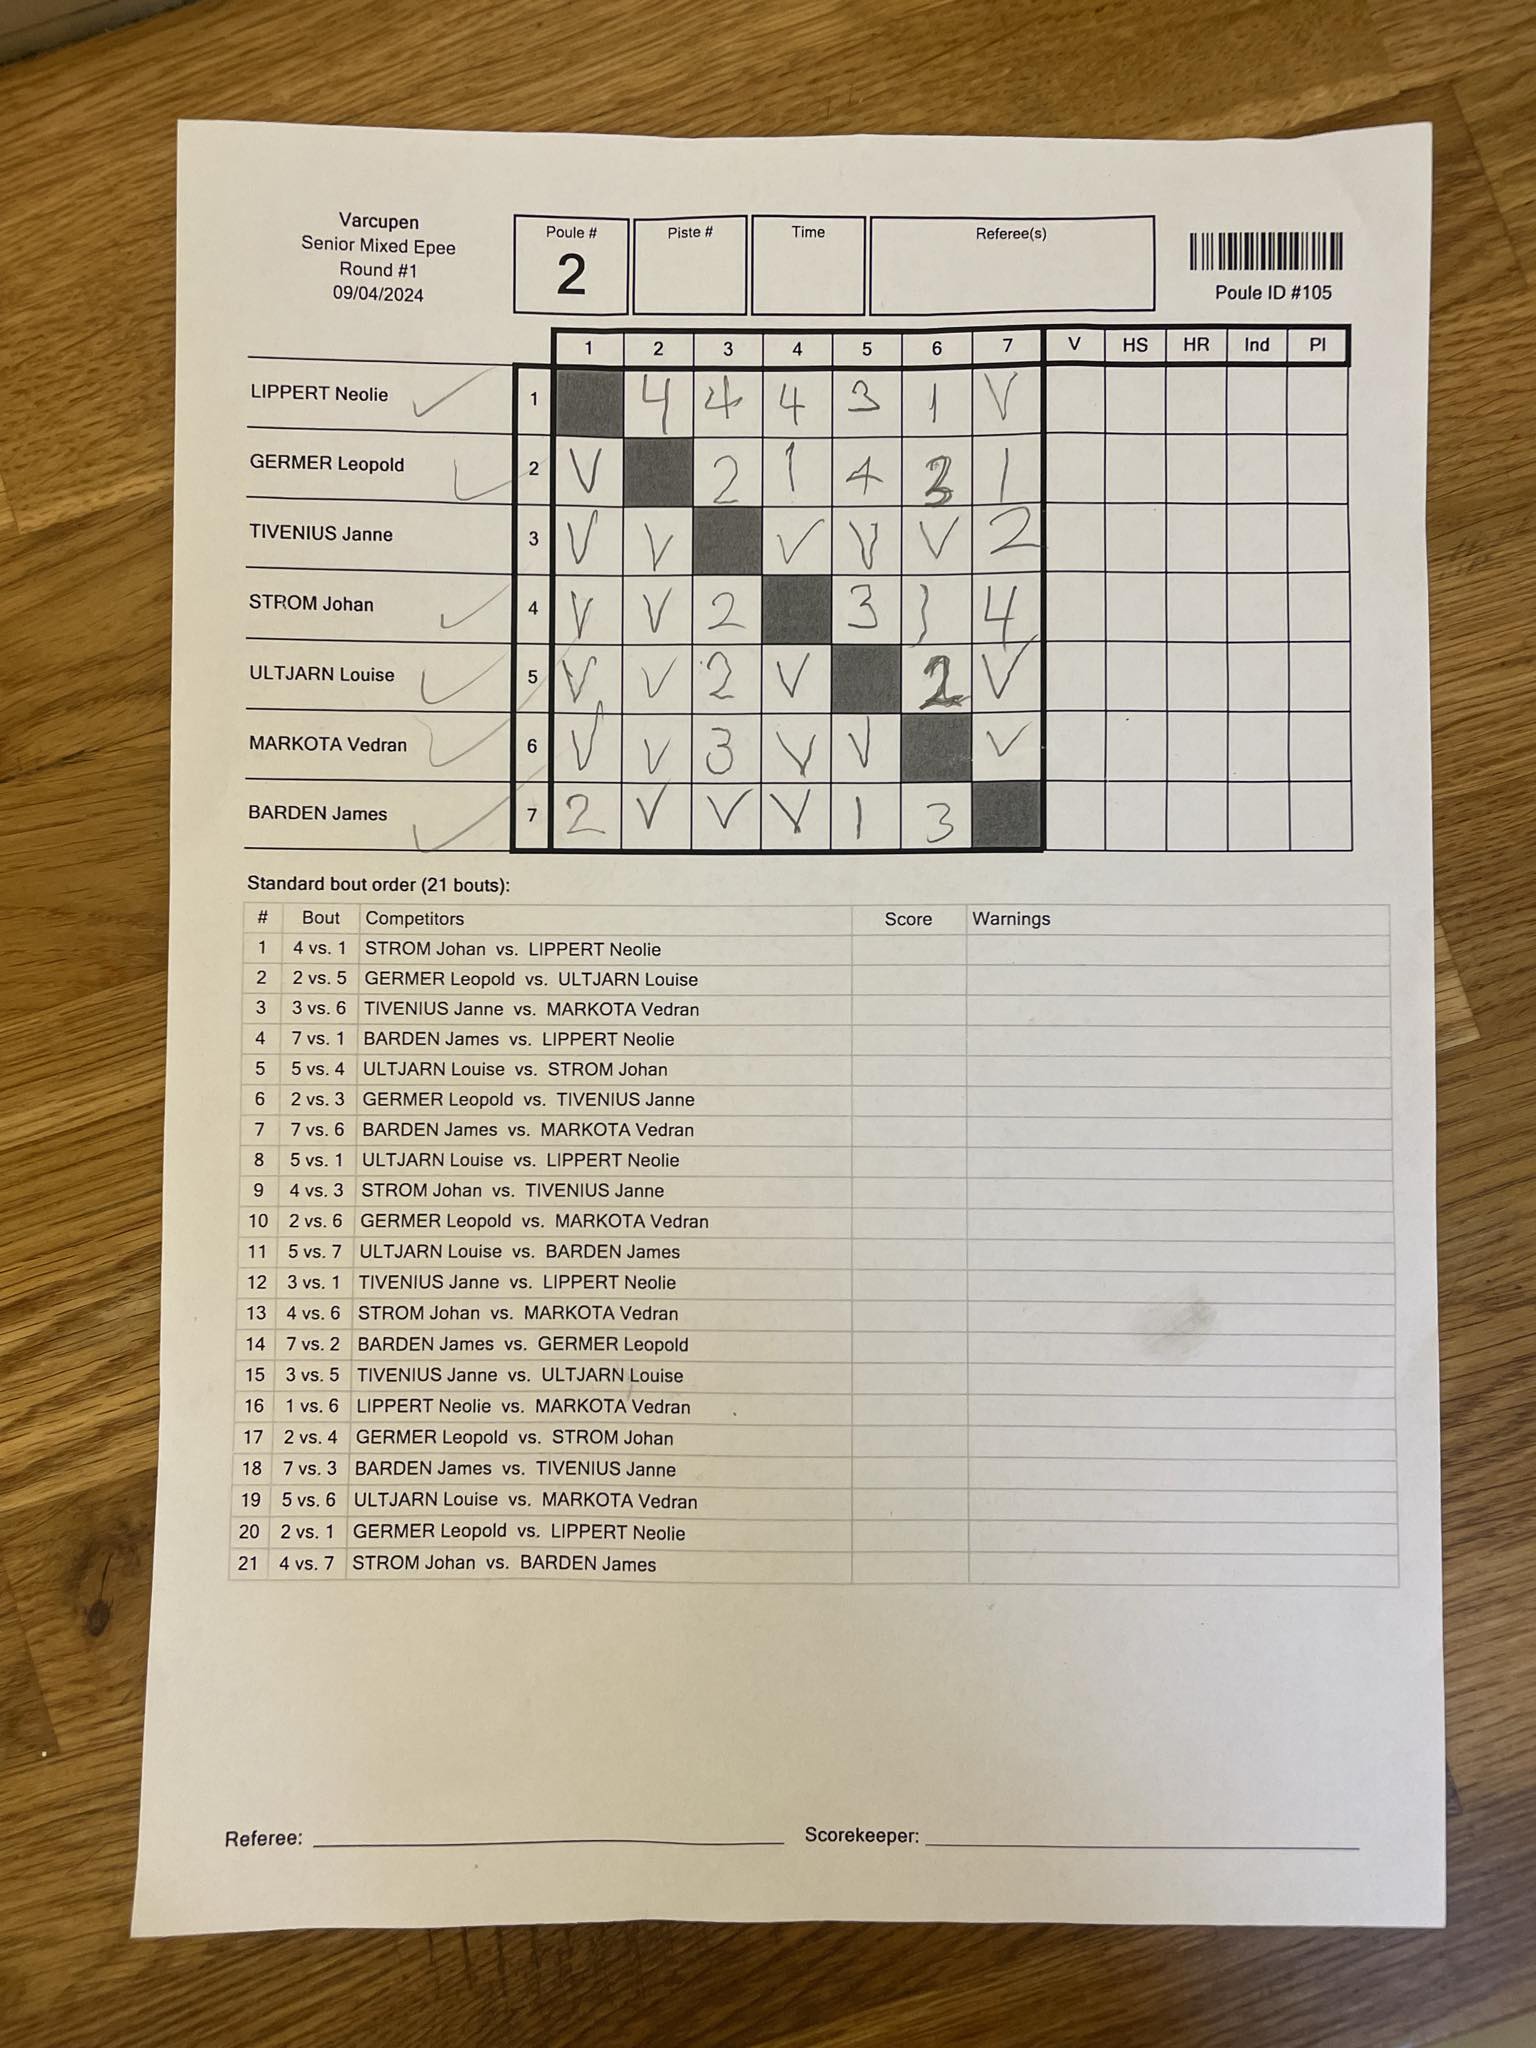 Varcupen
Senior Mixed Epee
Round #1
09/04/2024
Poule #
2
Piste #
Time
Referee(s)
Poule ID #105
1 2 3 4 5 6 7 V HS HR Ind Pl
LIPPERT Neolie 1 4 4 4 3 1 V
GERMER Leopold 2 V 2 1 4 3 1
TIVENIUS Janne 3 V V V V V 2
STROM Johan 4 V V 2 3 4
ULTJARN Louise 5 V V 2 V 2 V
MARKOTA Vedran 6 V V 3 V V V
BARDEN James 7 2 V V V 1 3
Standard bout order (21 bouts):
# Bout Competitors Score Warnings
1 4 vs. 1 STROM Johan vs. LIPPERT Neolie
2 2 vs. 5 GERMER Leopold vs. ULTJARN Louise
3 3 vs. 6 TIVENIUS Janne vs. MARKOTA Vedran
4 7 vs. 1 BARDEN James vs. LIPPERT Neolie
5 5 vs. 4 ULTJARN Louise vs. STROM Johan
6 2 vs. 3 GERMER Leopold vs. TIVENIUS Janne
7 7 vs. 6 BARDEN James vs. MARKOTA Vedran
8 5 vs. 1 ULTJARN Louise vs. LIPPERT Neolie
9 4 vs. 3 STROM Johan vs. TIVENIUS Janne
10 2 vs. 6 GERMER Leopold vs. MARKOTA Vedran
11 5 vs. 7 ULTJARN Louise vs. BARDEN James
12 3 vs. 1 TIVENIUS Janne vs. LIPPERT Neolie
13 4 vs. 6 STROM Johan vs. MARKOTA Vedran
14 7 vs. 2 BARDEN James vs. GERMER Leopold
15 3 vs. 5 TIVENIUS Janne vs. ULTJARN Louise
16 1 vs. 6 LIPPERT Neolie vs. MARKOTA Vedran
17 2 vs. 4 GERMER Leopold vs. STROM Johan
18 7 vs. 3 BARDEN James vs. TIVENIUS Janne
19 5 vs. 6 ULTJARN Louise vs. MARKOTA Vedran
20 2 vs. 1 GERMER Leopold vs. LIPPERT Neolie
21 4 vs. 7 STROM Johan vs. BARDEN James
Referee: Scorekeeper: